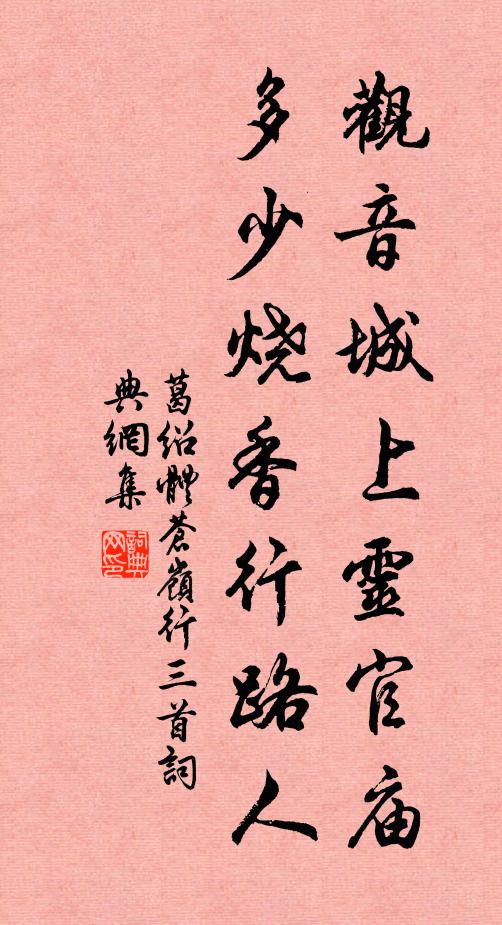 觀音城上靈官庙
多少烧香行路人
葛绍體蒼嶺行三首詞
典網集
詞典网印